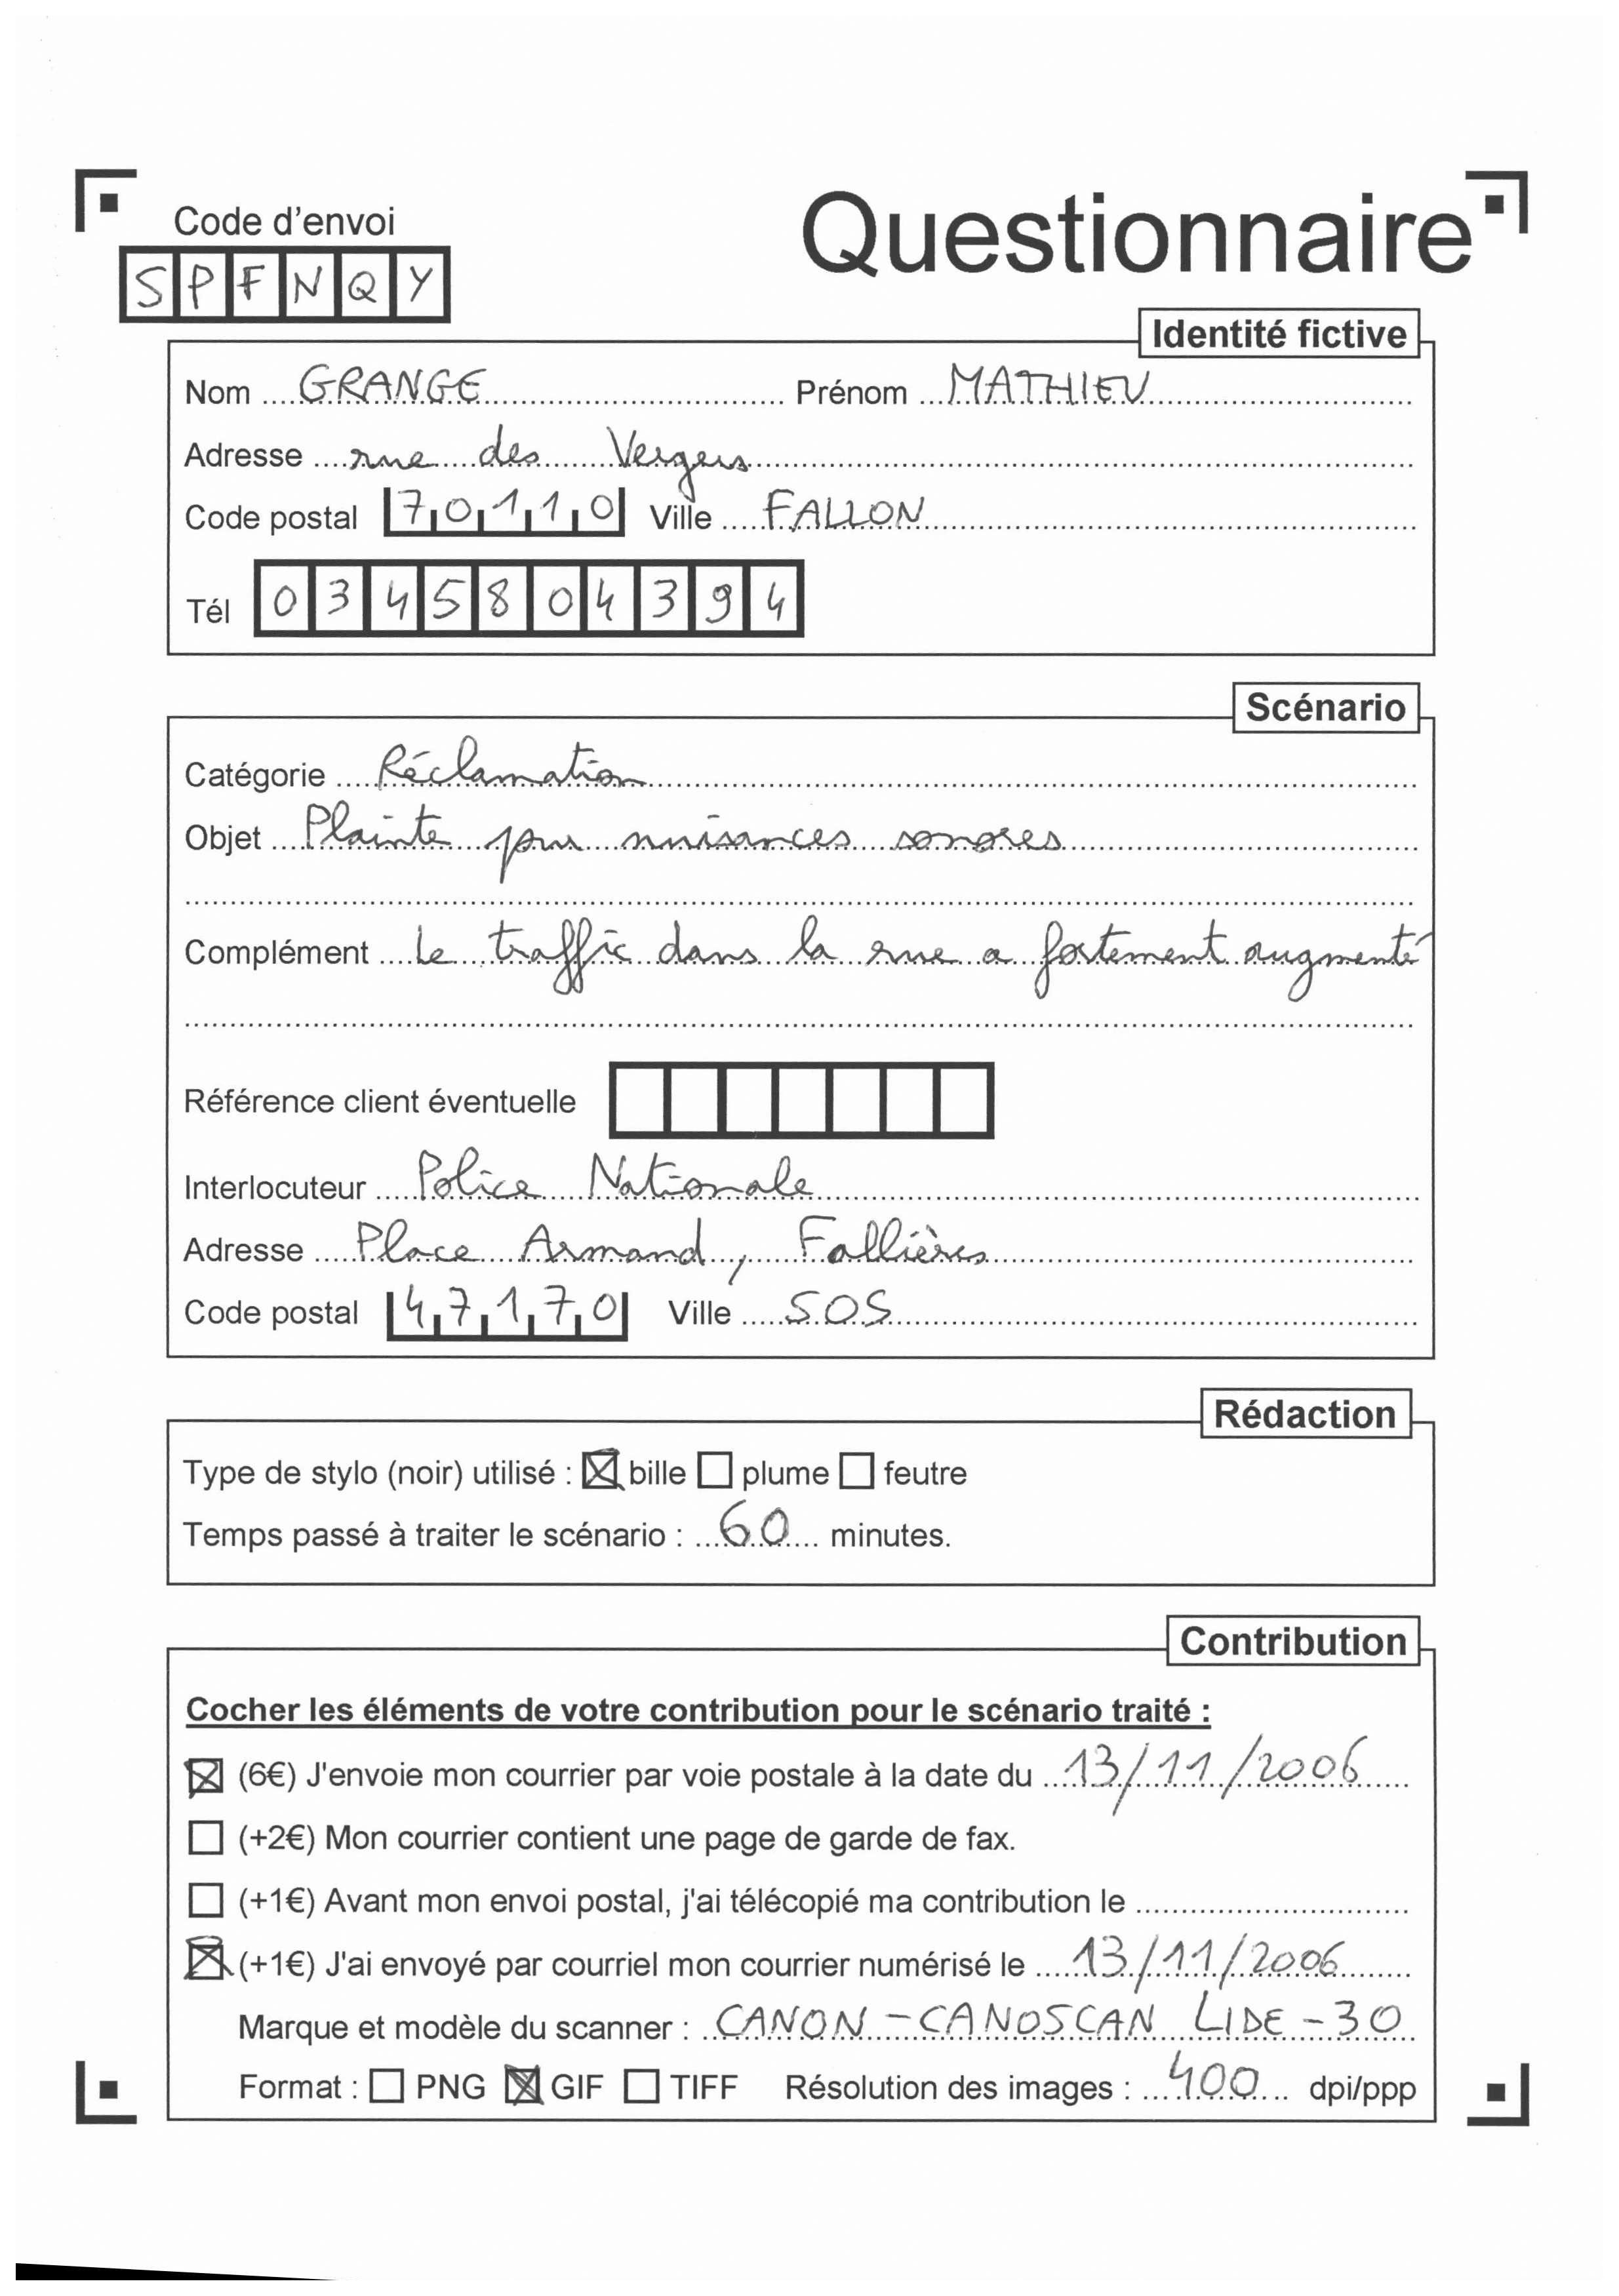 Code d'envoi
Questionnaire
SPFNQY
Identité fictive
Nom GRANGE Prénom MATHIEU
Adresse rue des Vergers
Code postal 70110 Ville FALLON
Tél 0345804394
Scénario
Catégorie Réclamation
Objet Plainte pour nuisances sonores
Complément Le traffic dans la rue a fortement augmenté
Référence client éventuelle
Interlocuteur Police Nationale
Adresse Place Armand, Fallières
Code postal 47170 Ville SOS
Rédaction
Type de stylo (noir) utilisé : bille plume feutre
Temps passé à traiter le scénario : 60 minutes.
Contribution
Cocher les éléments de votre contribution pour le scénario traité :
(6€) J'envoie mon courrier par voie postale à la date du 13/11/2006
(+2€) Mon courrier contient une page de garde de fax.
(+1€) Avant mon envoi postal, j'ai télécopié ma contribution le
(+1€) J'ai envoyé par courriel mon courrier numérisé le 13/11/2006
Marque et modèle du scanner : CANON - CANOSCAN LIDE - 30
Format : PNG GIF TIFF Résolution des images : 400 dpi/ppp